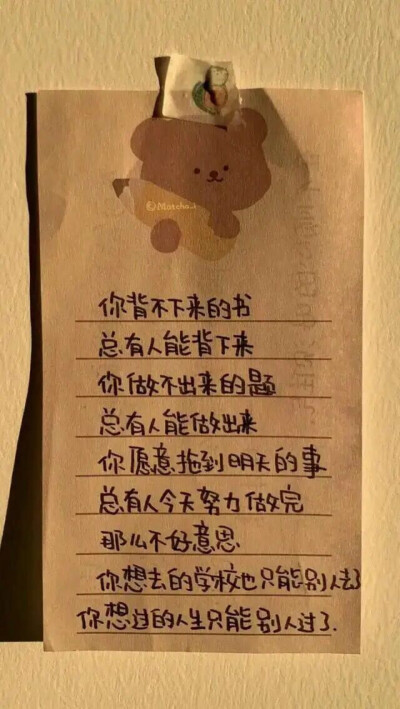 ©Matcha.J
你背不下来的书
总有人能背下来
你做不出来的题
总有人能做出来
你愿意拖到明天的事
总有人今天努力做完
那么不好意思
你想去的学校也只能别人去了
你想过的人生只能别人过了.